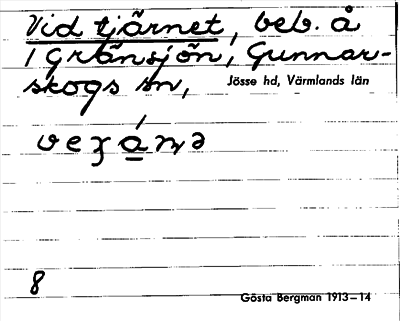 Vid tjärnet, beb. å
1 Gränsjön, Gunnar-
skogs sn,
Jösse hd, Värmlands län
8
Gösta Bergman 1913–14